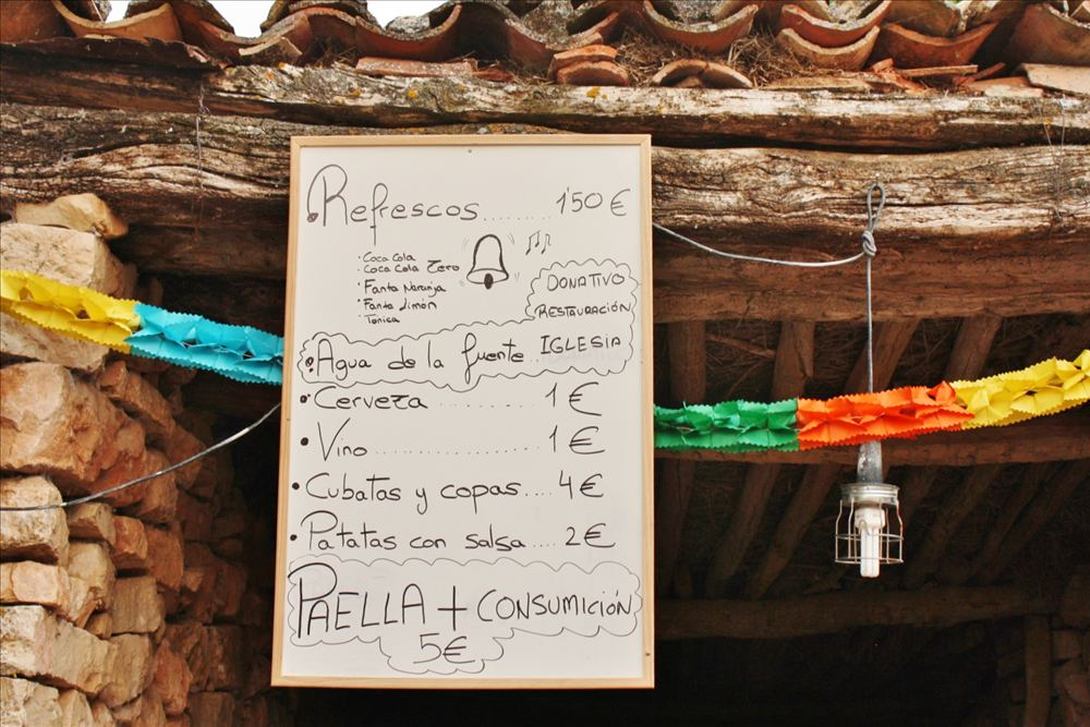 Refrescos......... 1'50 €
· Coca Cola
· Coca Cola Zero
· Fanta Naranja
· Fanta Limón
· Tónica
DONATIVO
RESTAURACIÓN
IGLESIA
• Agua de la fuente..
• Cerveza ............ 1 €
• Vino.................. 1 €
• Cubatas y copas.... 4 €
• Patatas con salsa.... 2 €
PAELLA + CONSUMICIÓN
5€